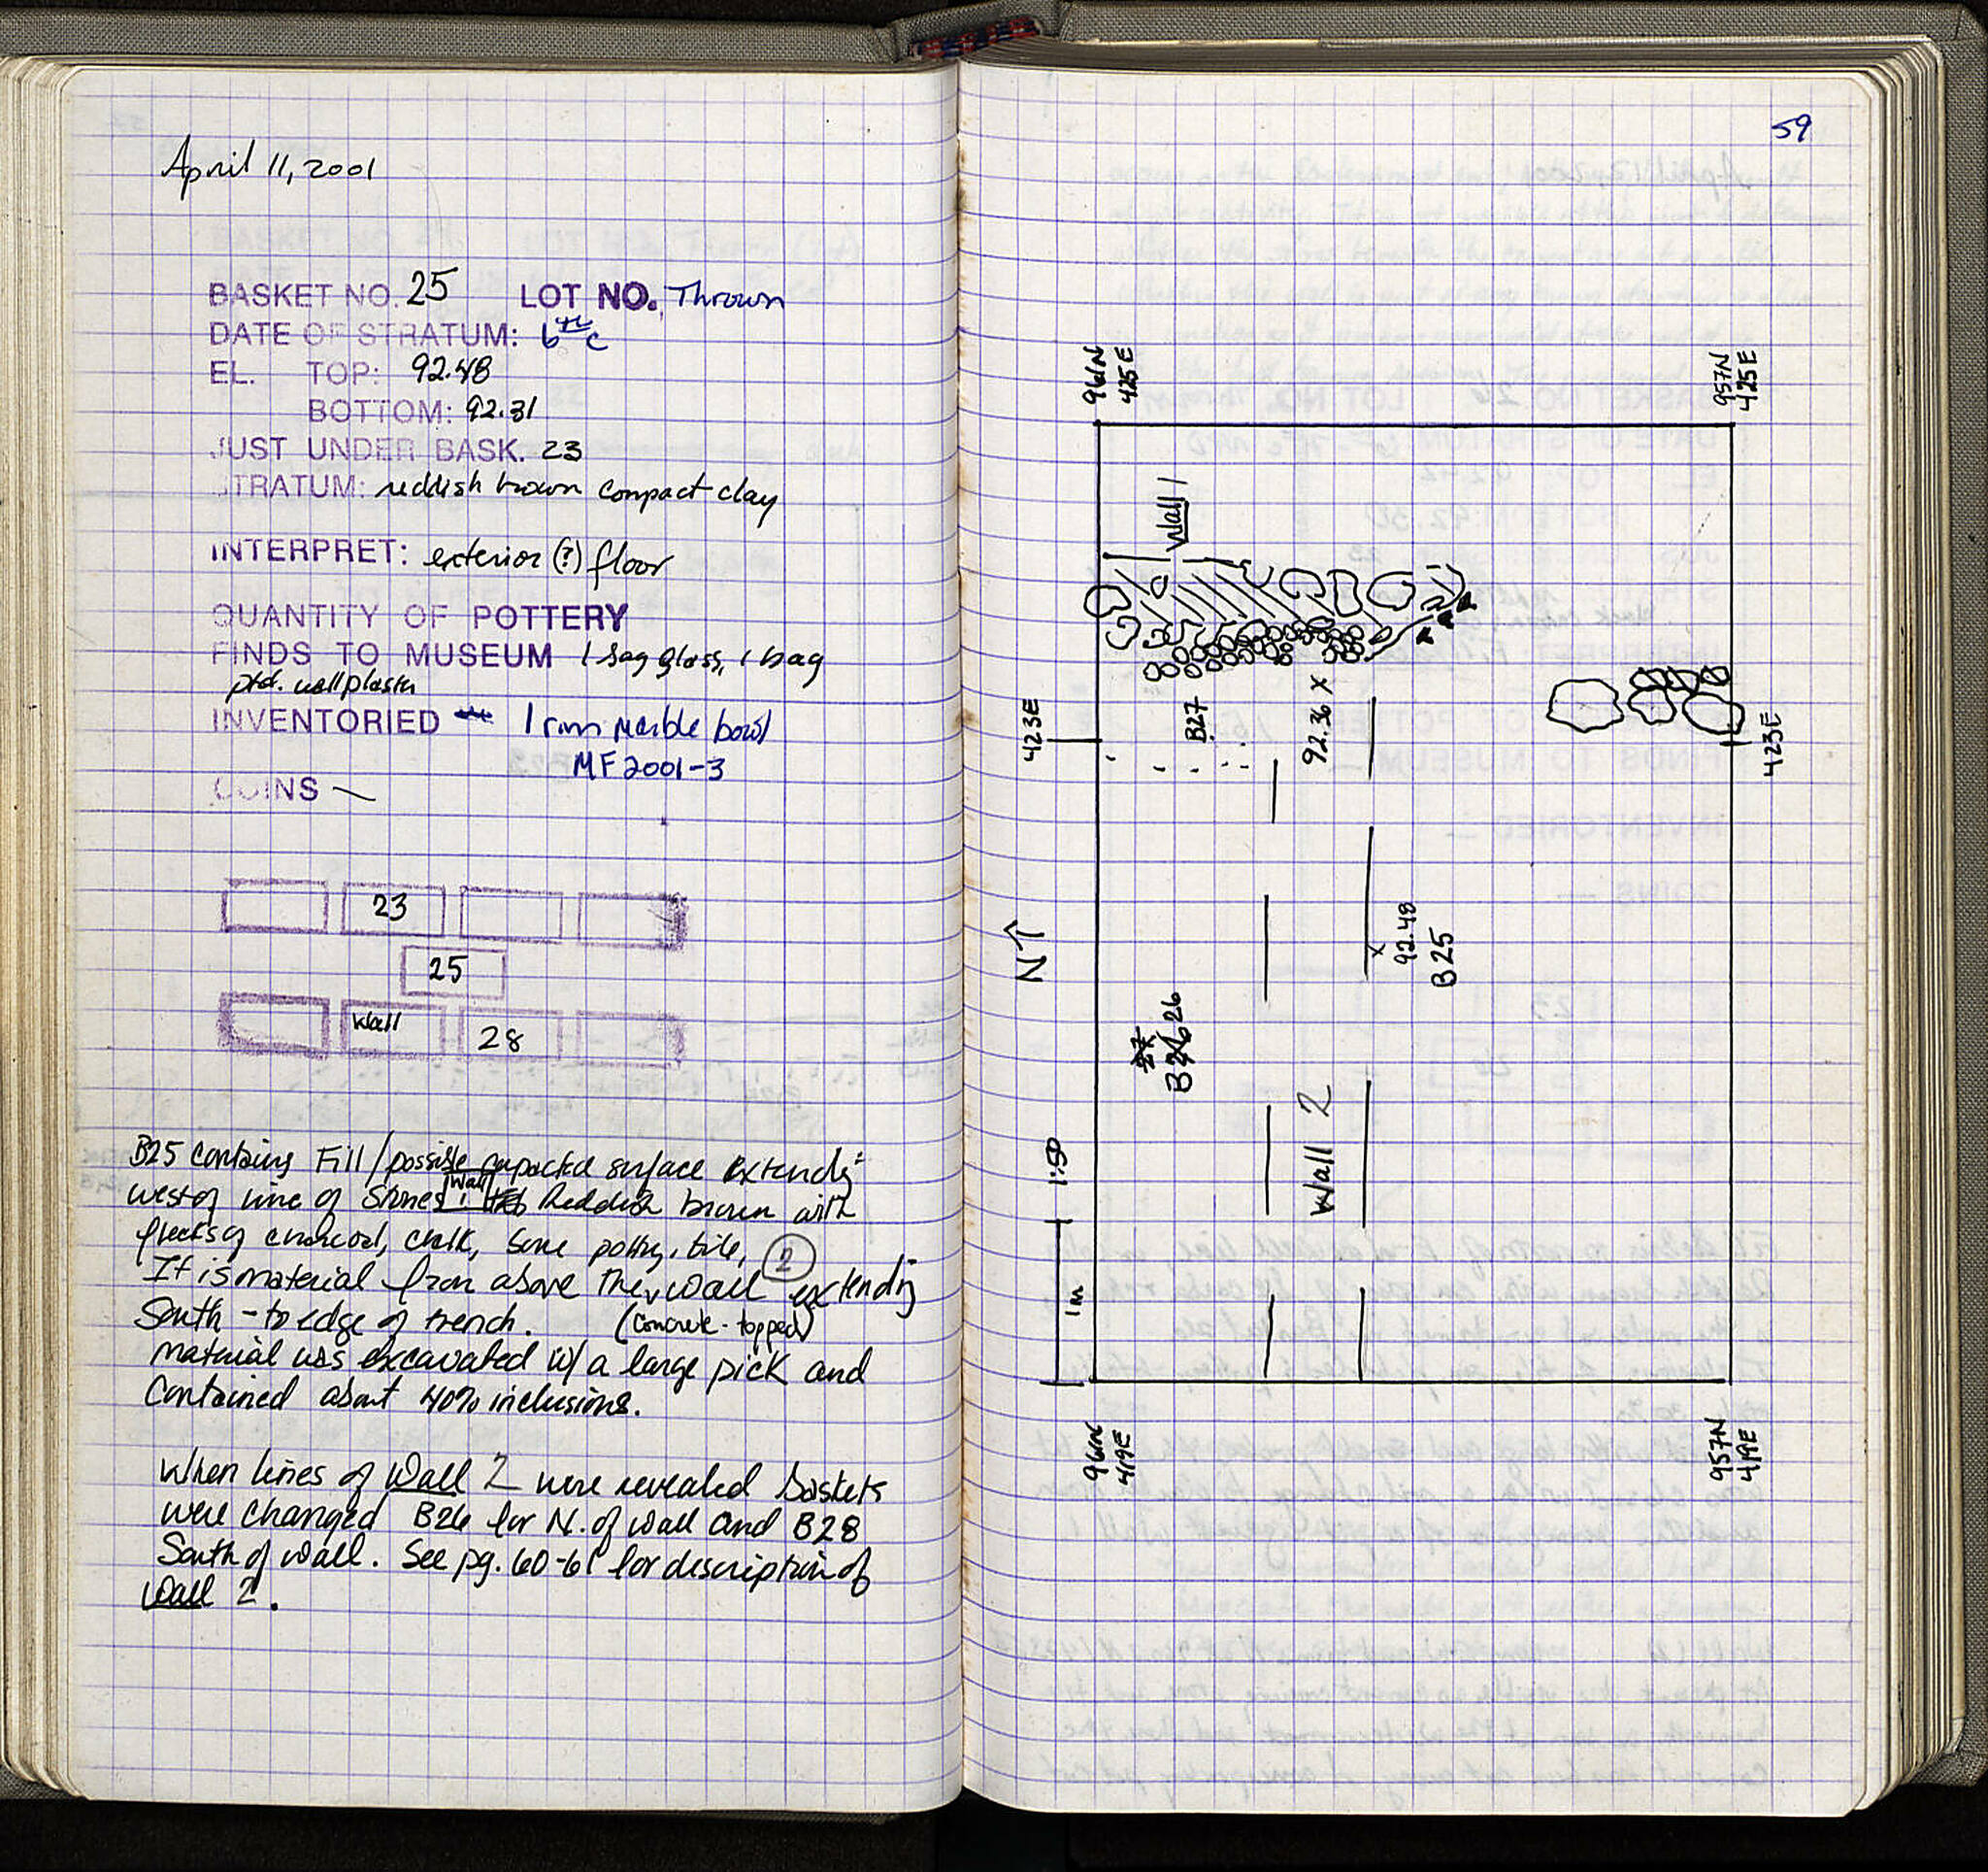 April 11, 2001
BASKET NO. 25 LOT NO. Thrown
DATE OF STRATUM: 6th c
EL. TOP: 92.48
BOTTOM: 92.31
JUST UNDER BASK. 23
STRATUM: reddish brown compact clay
INTERPRET: exterior (?) floor
QUANTITY OF POTTERY
FINDS TO MUSEUM 1 bag glass, 1 bag
ptd. wall plaster
INVENTORIED 1 rim marble bowl
MF 2001-3
COINS —
23
25
Wall 28
B25 contains Fill/possible compacted surface extending
west of line of stones Wall 1 Reddish brown with
flecks of charcoal, chalk, some pottery, tile,
It is material from above the wall 2 extending
South - to edge of trench. (concrete-topped)
material was excavated w/ a large pick and
contained about 40% inclusions.
When lines of Wall 2 were revealed baskets
were changed B26 for N. of wall and B28
South of wall. See pg. 60-61 for description of
Wall 2.
59
961N
425E
957N
425E
Wall 1
423E
B27
92.36 X
423E
N
X
92.48
B25
27
B26 26
Wall 2
1:50
1m
961N
419E
957N
419E